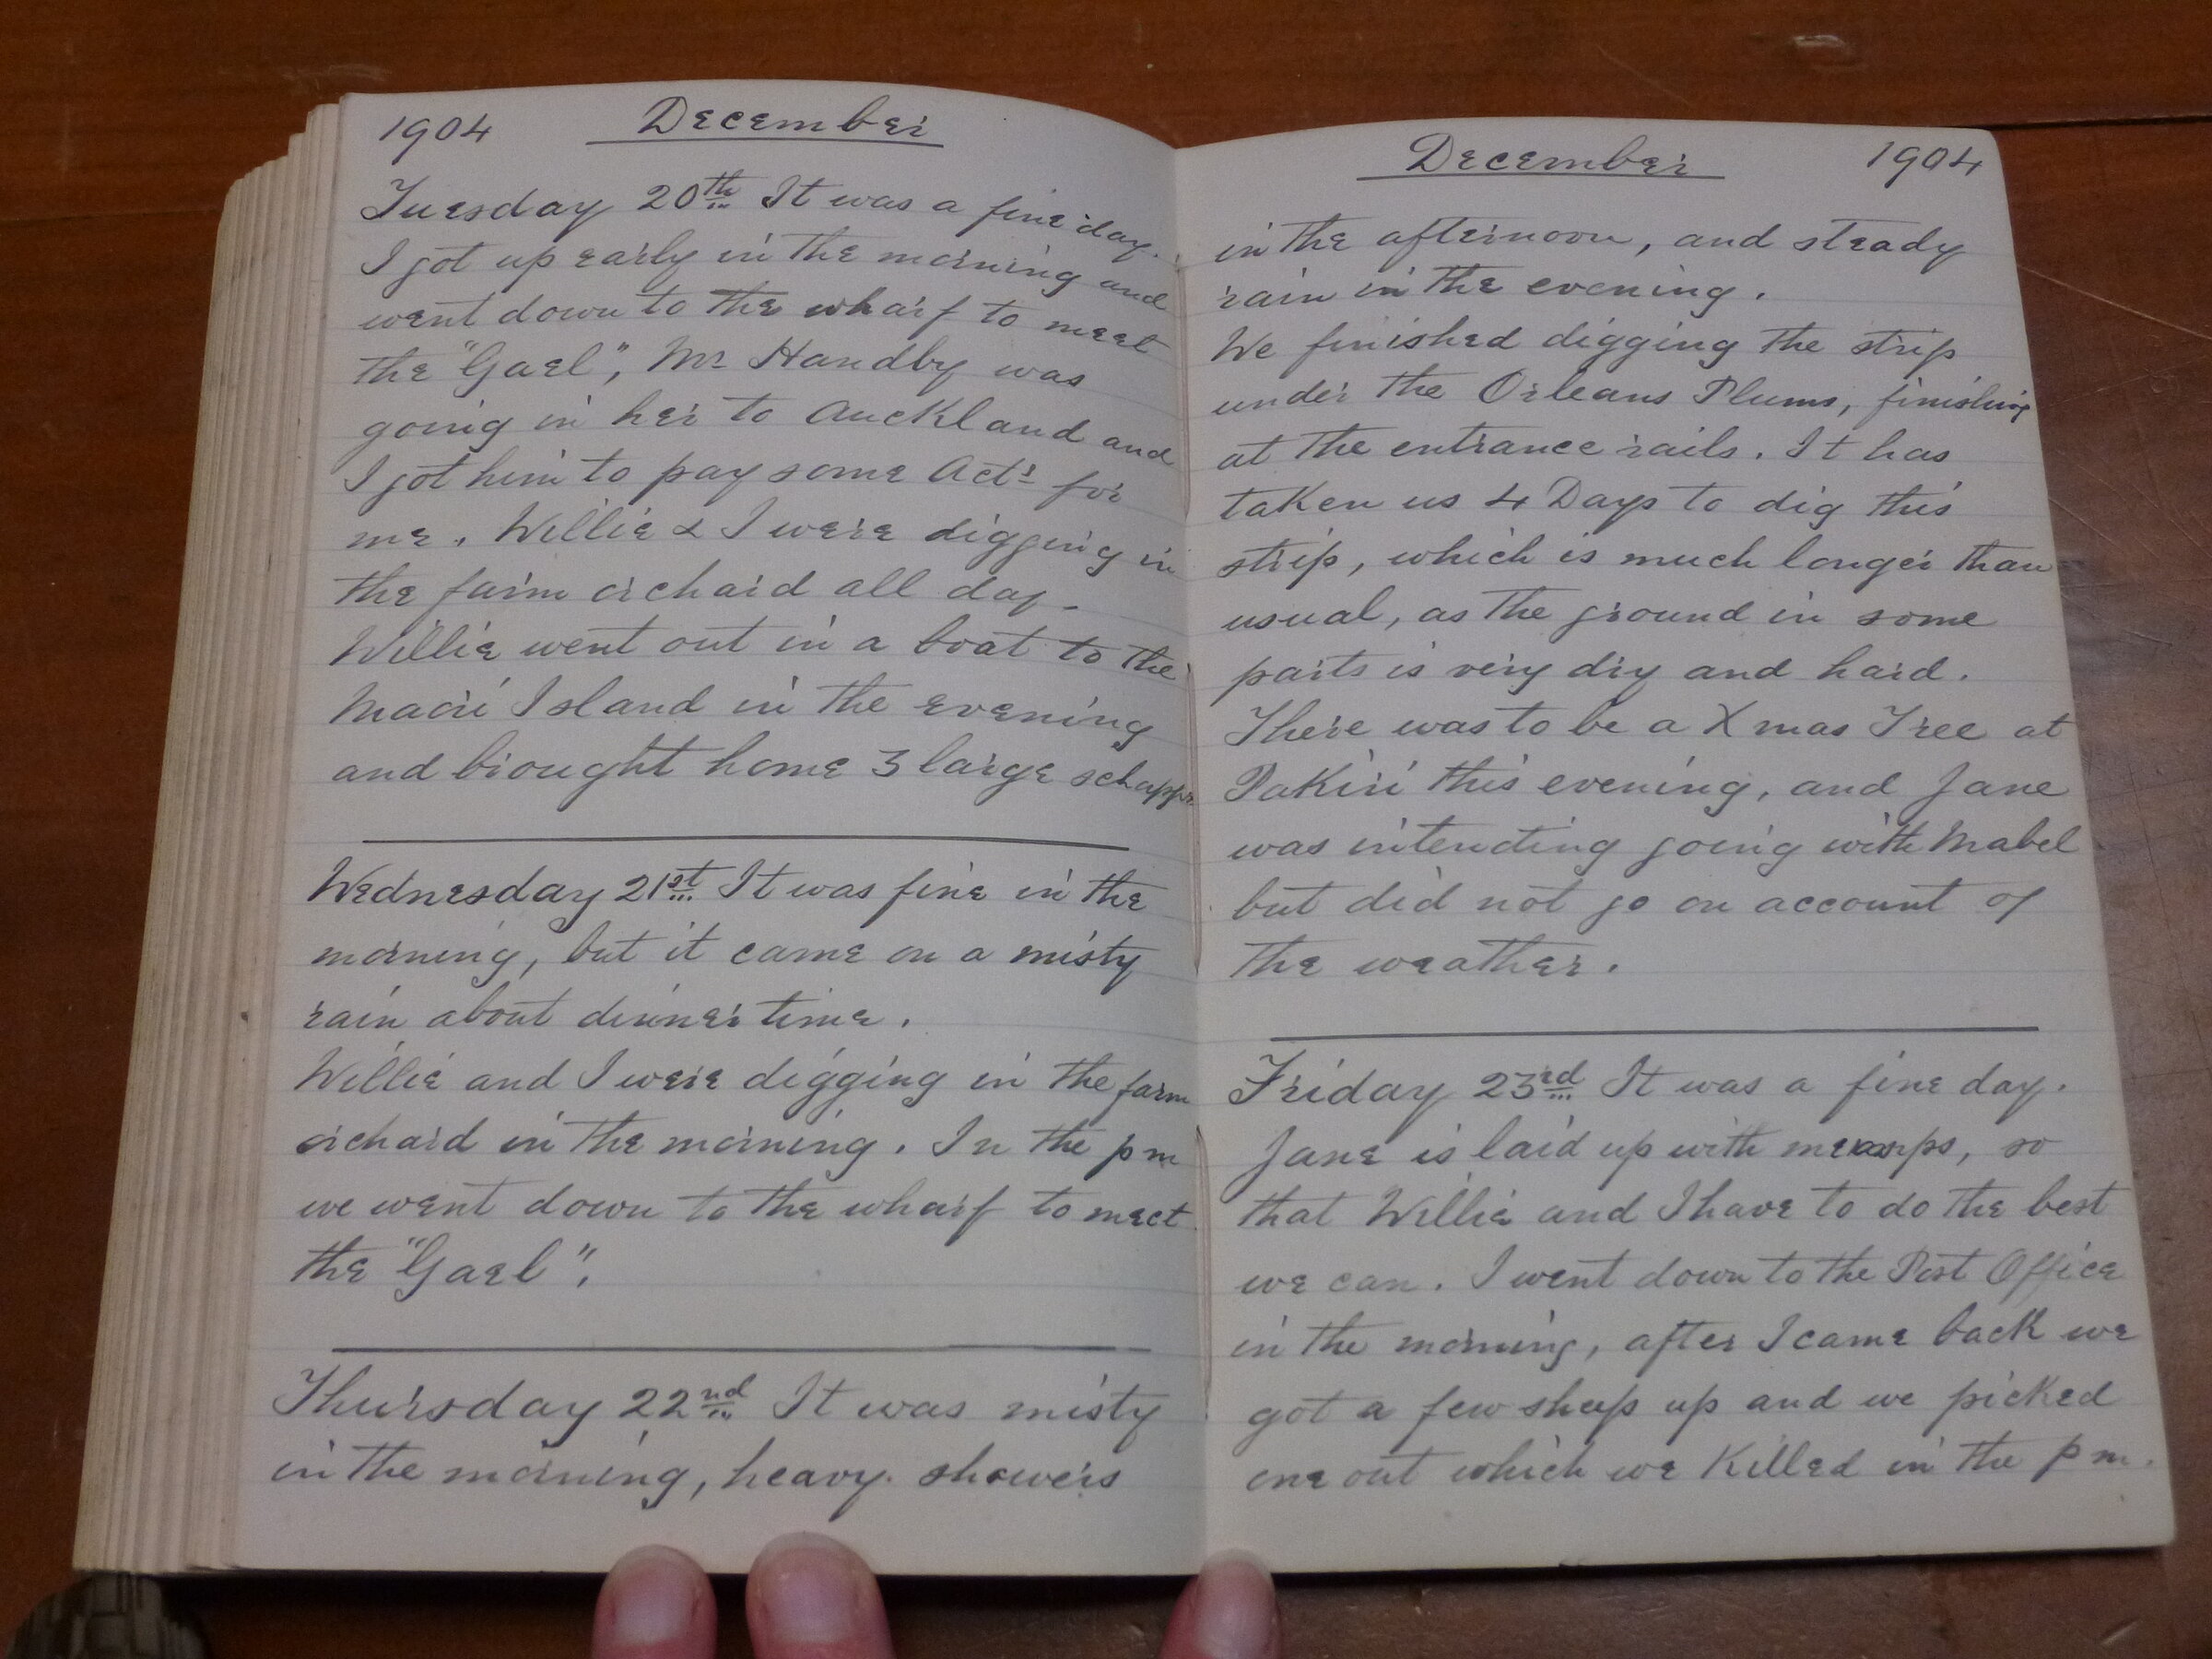 1904 December
Tuesday 20th It was a fine day.
I got up early in the morning and
went down to the wharf to meet
the "Gael", Mr Handby was
going in her to Auckland and
I got him to pay some Acts for
me. Willie & I were digging in
the farm orchard all day.
Willie went out in a boat to the
Maori Island in the evening
and brought home 3 large schapps
Wednesday 21st It was fine in the
morning, but it came on a misty
rain about dinner time.
Willie and I were digging in the farm
orchard in the morning. In the pm
we went down to the wharf to meet
the "Gael".
Thursday 22nd It was misty
in the morning, heavy showers
December 1904
in the afternoon, and steady
rain in the evening.
We finished digging the strip
under the Orleans Plums, finishing
at the entrance rails. It has
taken us 4 Days to dig this
strip, which is much longer than
usual, as the ground in some
parts is very dry and hard.
There was to be a Xmas Tree at
Pakiri this evening, and Jane
was intending going with Mabel
but did not go on account of
the weather.
Friday 23rd It was a fine day.
Jane is laid up with , so
that Willie and I have to do the best
we can. I went down to the Post Office
in the morning, after I came back we
got a few sheep up and we picked
one out which we Killed in the pm.